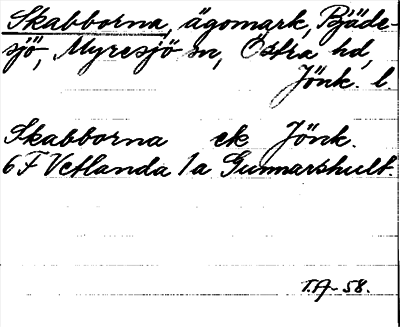 Skabborna, ägomark, Bjäde-
sjö, Myresjö sn, Östra hd,
Jönk. l.
Skabborna ek Jönk.
6F Vetlanda 1a Gunnarshult.
T.A-58.